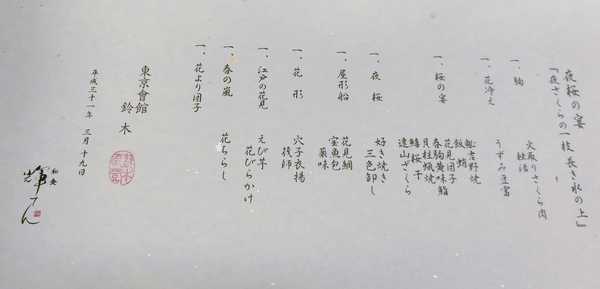 夜桜の宴
『夜さくらの一枝 長き水の上』
一、駒
火取りさくら肉
独活
一、花冷え
うすみ豆富
一、桜の宴
鮑吉野焼
飯蛸
花見団子
春駒黄味鮨
貝柱慎焼
鱒桜干
遠山ざくら
一、夜桜
好き焼き
三色卸し
一、屋形船
花見鯛
宝魚包
薬味
一、花形
穴子衣揚
筏師
一、江戸の花見
えび芋
花びらかけ
一、春の嵐
花ちらし
一、花より団子
東京會館
鈴木
平成三十一年 三月十九日
和食